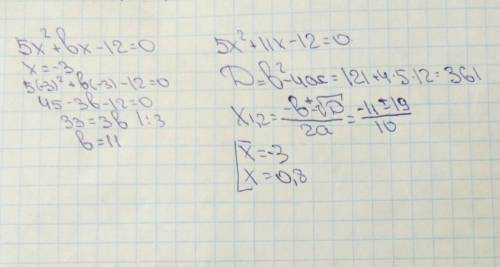 5x²+bx-12=0
x=-3
5(-3)²+b(-3)-12=0
45-3b-12=0
33=3b |:3
b=11
5x²+11x-12=0
D=b²-4ac=121+4·5·12=361
x₁,₂=(-b±√D)/2a=(-11±19)/10
[x=-3
x=0,8